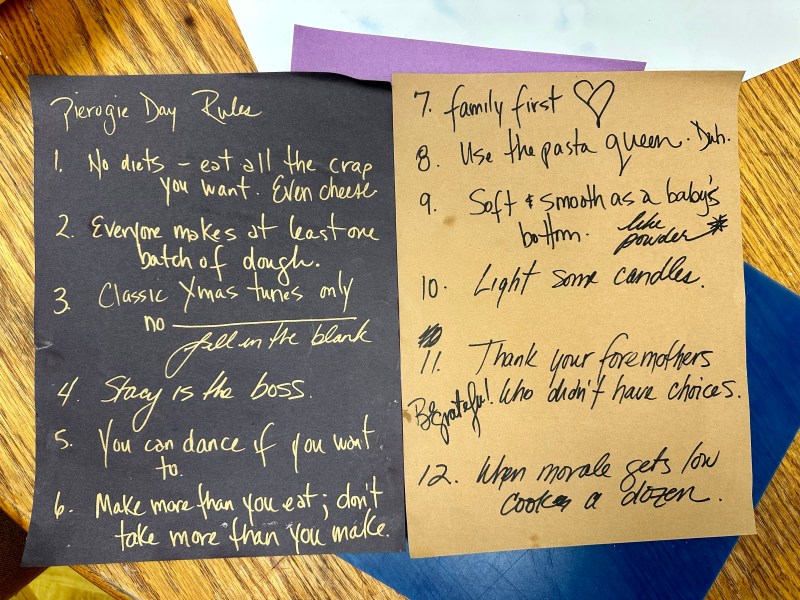 Pierogie Day Rules
1. No diets – eat all the crap
you want. Even cheese.
2. Everyone makes at least one
batch of dough.
3. Classic Xmas tunes only
no ____________
fill in the blank
4. Stacy is the boss.
5. You can dance if you want
to.
6. Make more than you eat; don't
take more than you make.
7. family first ♡
8. Use the pasta queen. Duh.
9. Soft & smooth as a baby's
bottom. like
powder *
10. Light some candles.
11. Thank your foremothers
Be grateful! Who didn't have choices.
12. When morale gets low
cook a dozen.